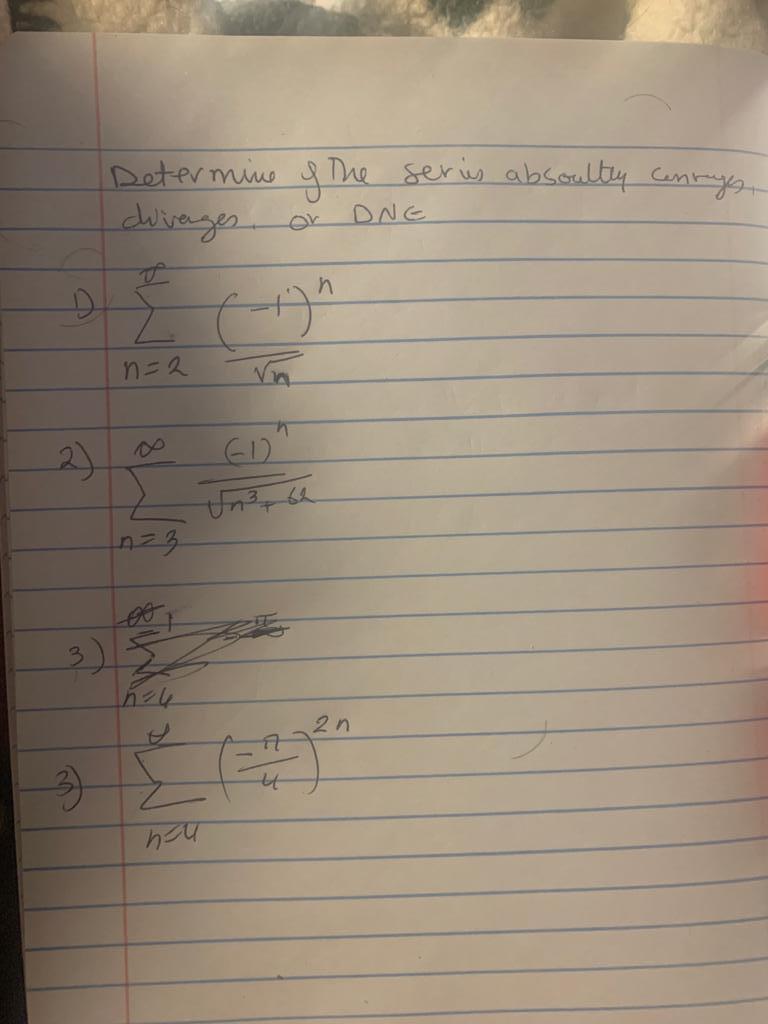 Determine if the series absoultly converges,
diverages. or DNE
1) ∞ ∑ n=2 (-1)^n / √n
2) ∞ ∑ n=3 (-1)^n / √n³+62
3) ∑ n=4
3) ∞ ∑ n=4 (-π/4)^2n